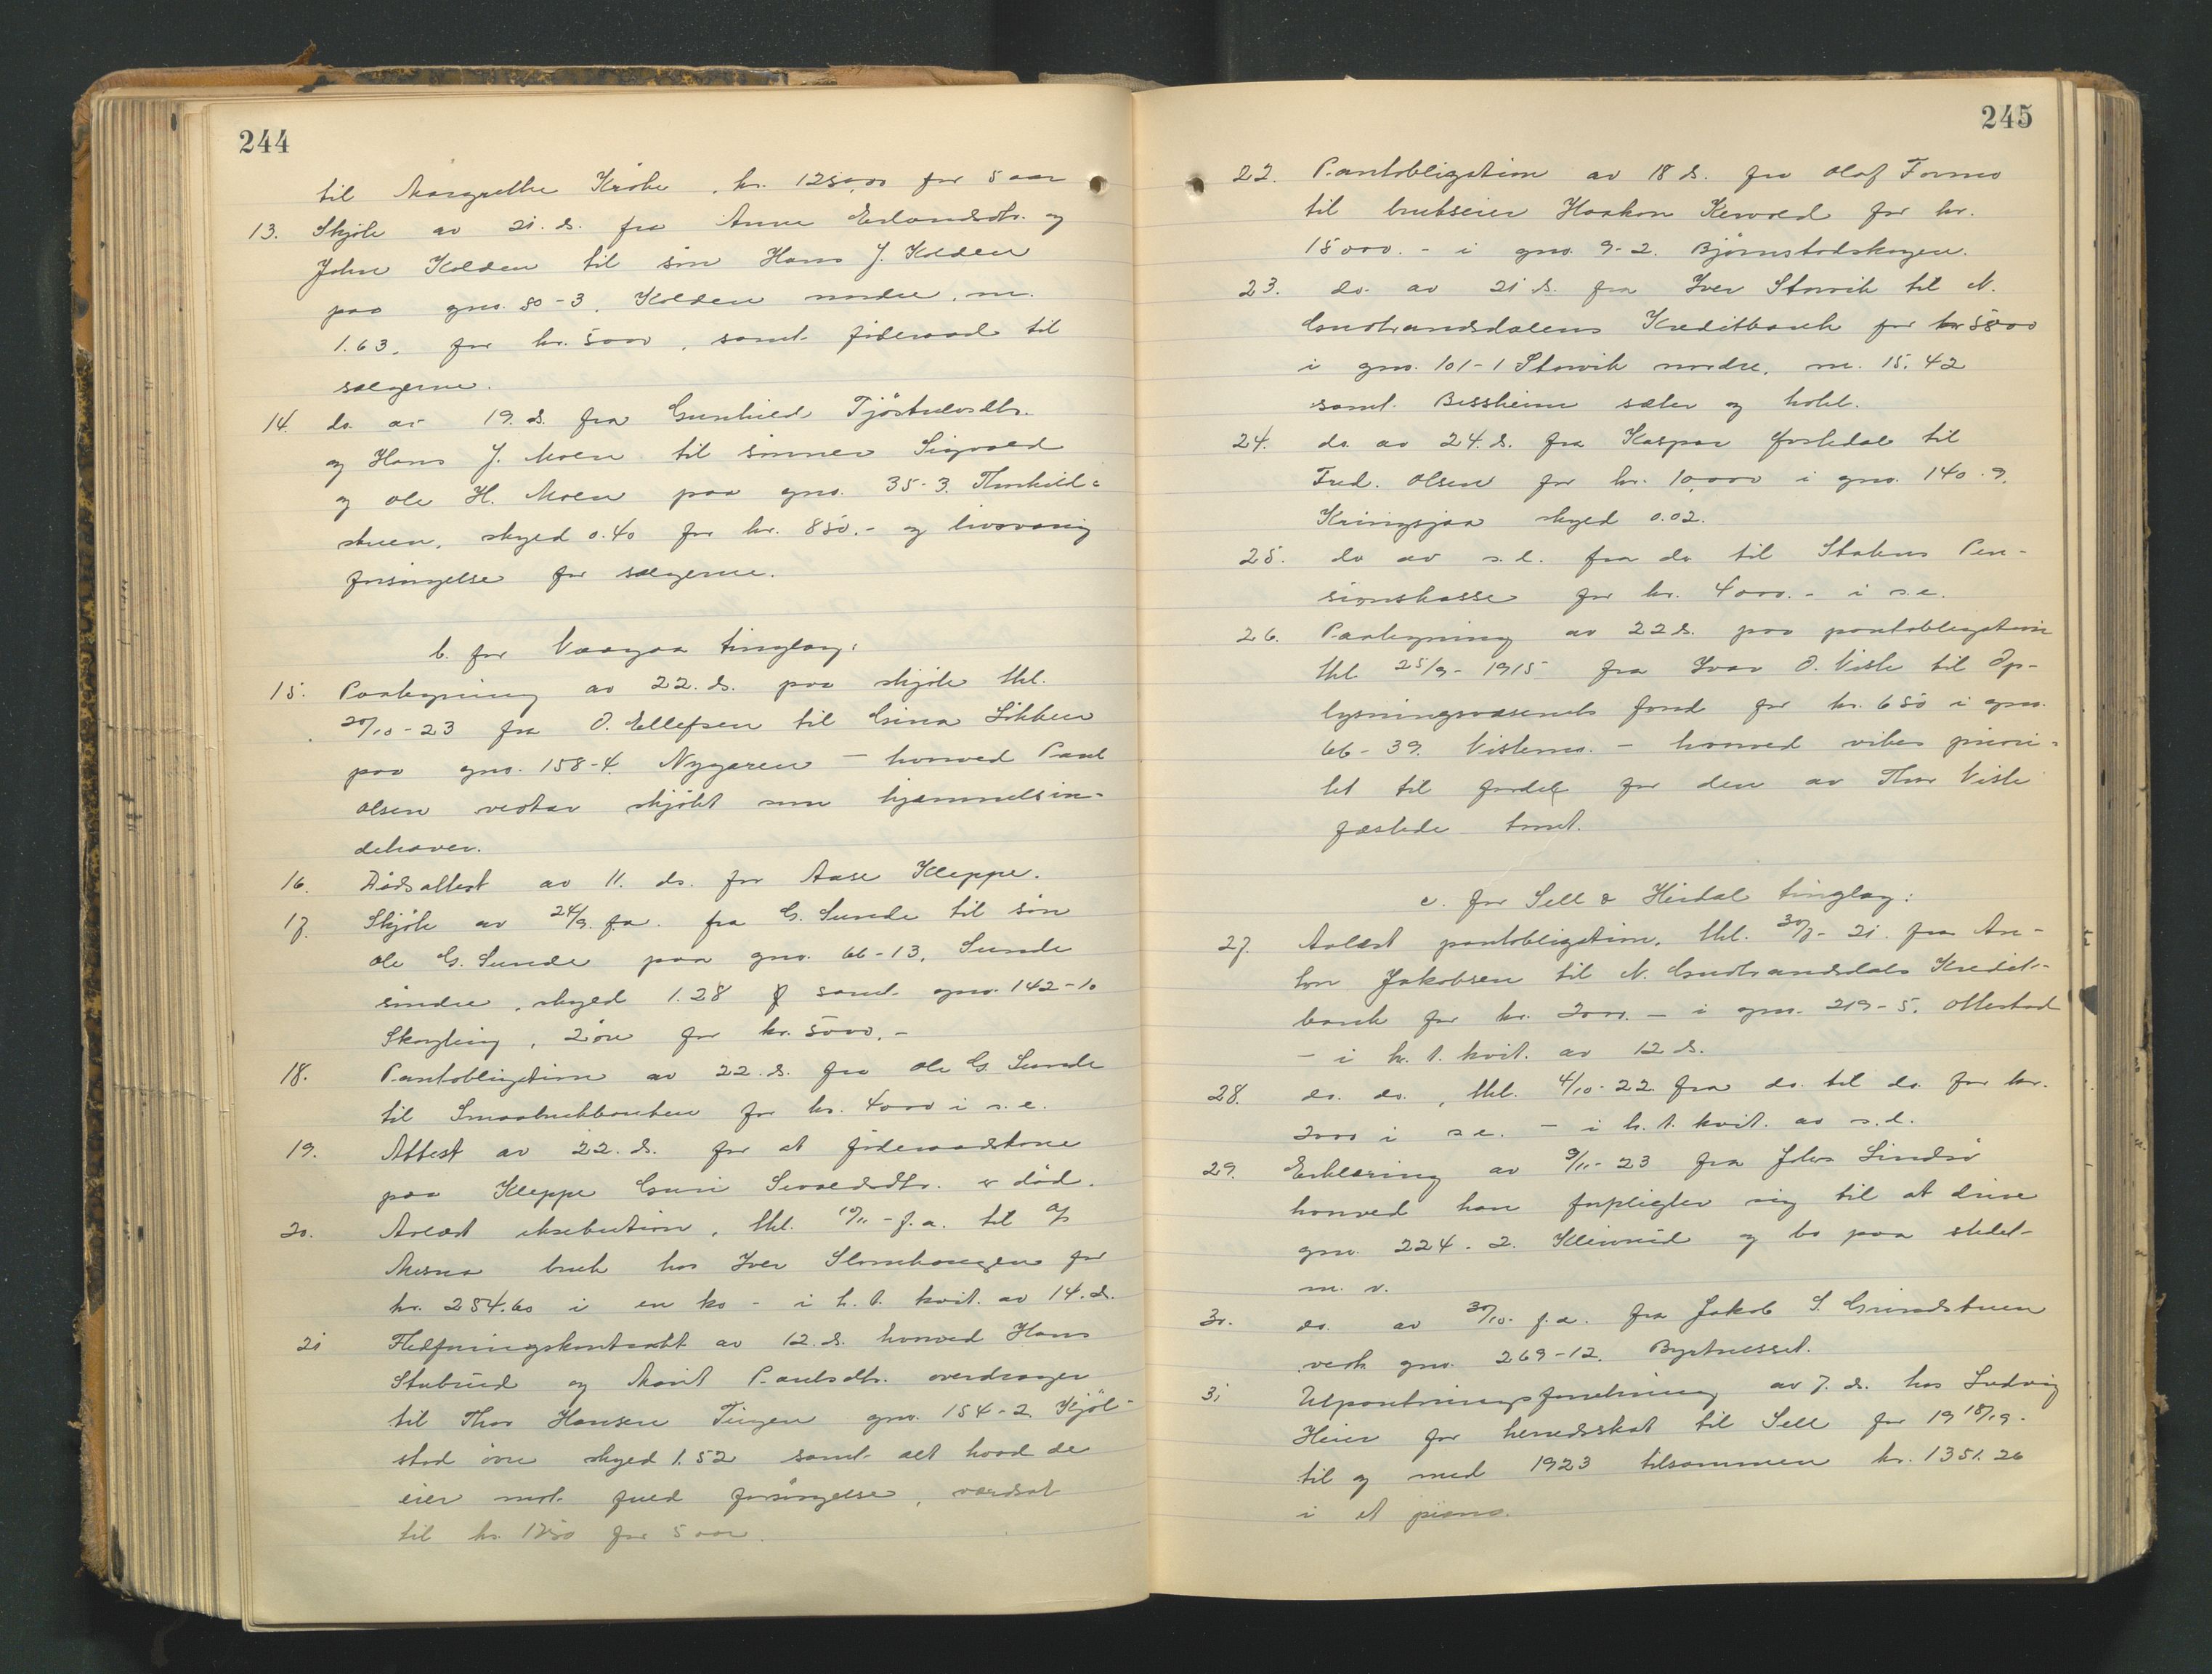 244
til Margrethe Kröke, kr. 1250,00 for 5 aar
13. Skjöte av 21. ds. fra Anne Erlandsdtr. og
John Kolden til sön Hans J. Kolden
paa gno. 80-3, Kolden nordre, m.
1.63, for kr. 5000, samt föderaad til
sælgerne.
14. do. av 19. ds. fra Gunhild Tjöstulvsdtr.
og Hans J. Moen til sönner Sigvald
og Ole H. Moen paa gno. 35-3. Thorhild-
stuen, skyld 0.40 for kr. 850.- og livsvarig
forsörgelse for sælgerne.
b. for Vaagaa tinglag:
15. Paategning av 22. ds. paa skjöte thl.
20/10-23 fra O. Ellefsen til Gina Lökken
paa gno. 158-4. Nygaren - hvorved Paul
Olsen vedtar skjötet som hjemmelsin-
dehaver.
16. Dödsattest av 11. ds. for Aase Kleppe.
17. Skjöte av 24/9 f.a. fra G. Sunde til sön
Ole G. Sunde paa gno. 66-13, Sunde
söndre, skyld 1.28 samt gno. 142-10
Skogling, 2 öre for kr. 5000.-
18. Pantobligation av 22. ds. fra Ole G. Sunde
til Smaabrukbanken for kr. 4000 i s.e.
19. Attest av 22. ds. for at föderaadskone
paa Kleppe Guri Sivaldsdtr. er död.
20. Avlæst eksekution, thl. 10/11-f.a. til A/S
Mesna bruk hos Iver Slombaugen for
kr. 254.60 i en ko - i h.t. kvit. av 14. ds.
21 Fledföringskontrakt av 12. ds. hvorved Hans
Stubrud og Marit Paulsdtr. overdrager
til Thor Hansen Tingen gno. 154-2 Kjöl-
stad övre skyld 1.52 samt alt hvad de
eier mot fuld forsörgelse, værdsat
til kr. 1250 for 5 aar.
245
22. Pantobligation av 18 ds. fra Olaf Formo
til brukseier Haakon Kervold for kr.
15000.- i gno. 9-2. Björnstadskogen.
23. do. av 21 ds. fra Iver Storvik til N.
Gudbrandsdalens Kreditbank for kr 5000
i gno. 101-1 Storvik nordre, m. 15.42
samt Bessheim sæter og hotel.
24. do. av 24. ds. fra Kaspar Jostedal til
Fred. Olsen for kr. 10,000 i gno. 140-9.
Kringsjaa skyld 0.02.
25. do av s.d. fra do til Statens Pen-
sionskasse for kr. 4000.- i s.e.
26. Paategning av 22 ds. paa pantobligation
thl. 25/9-1915 fra Ivar O. Viste til Op-
lysningsvæsenets fond for kr. 650 i gno.
66-39. Vistemo. - hvorved vikes priori-
tet til fordel for den av Thor Viste
fæstede tomt.
c. for Sell & Heidal tinglag:
27. Avlæst pantobligation, thl. 30/7-21 fra An-
ton Jakobsen til N. Gudbrandsdals Kredit-
bank for kr. 2000.- i gno. 219-5. Ottestad
- i h.t. kvit. av 12 ds.
28. do. do., thl. 4/10-22 fra do. til do. for kr.
2000 i s.e. - i h.t. kvit. av s.d.
29. Erklæring av 9/11-23 fra Johs Lindsö
hvorved han forpligter sig til at drive
gno. 224-2. Kleivrud og bo paa stedet
m. v.
30. do. av 30/10-f.a. fra Jakob S. Grindstuen
vedk gno. 269-12. Byrtnesset.
31 Utpantningsforretning av 7. ds. hos Ludvig
Heier for herredsskat til Sell for 1918/19-
til og med 1923 tilsammen kr. 1351.26
i et piano.